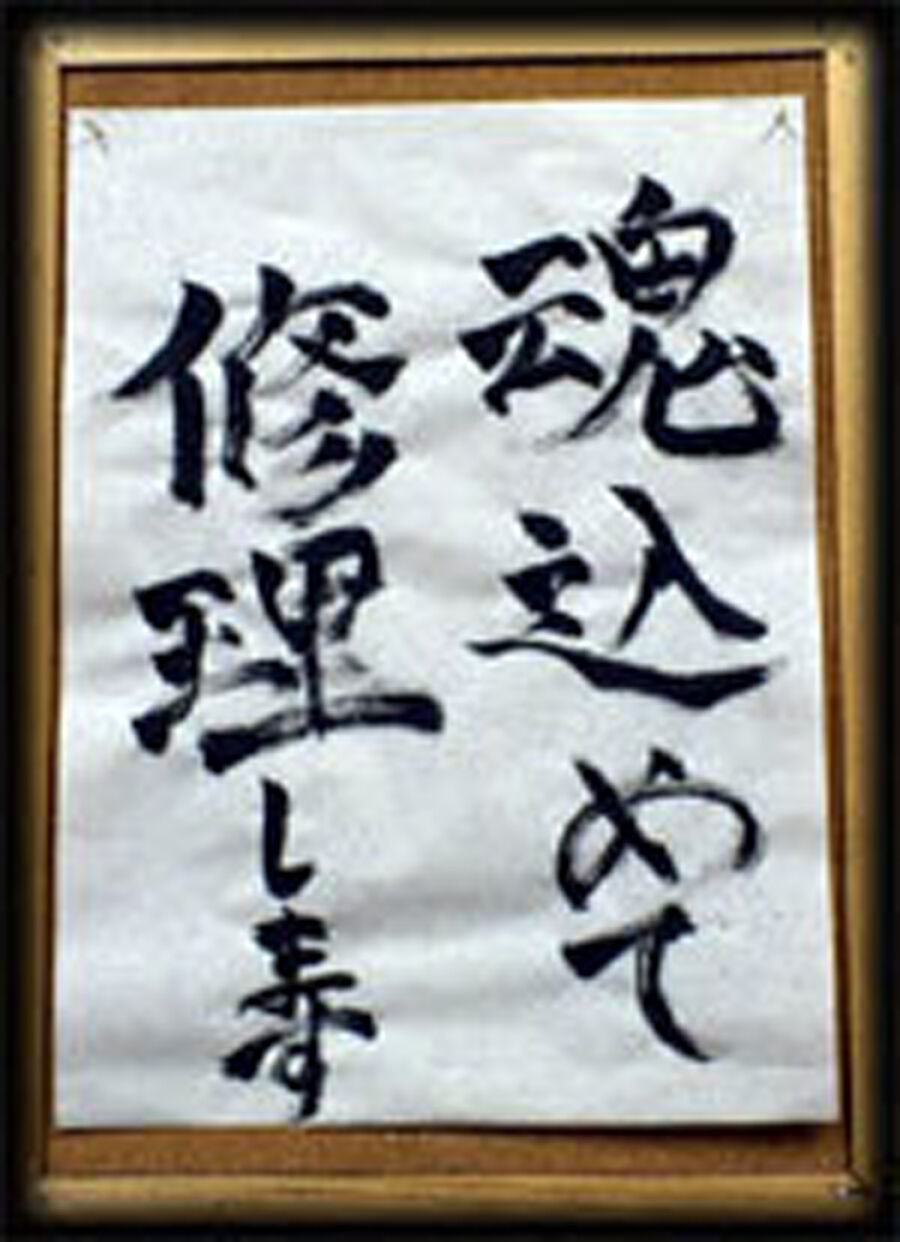 魂込めて
修理します